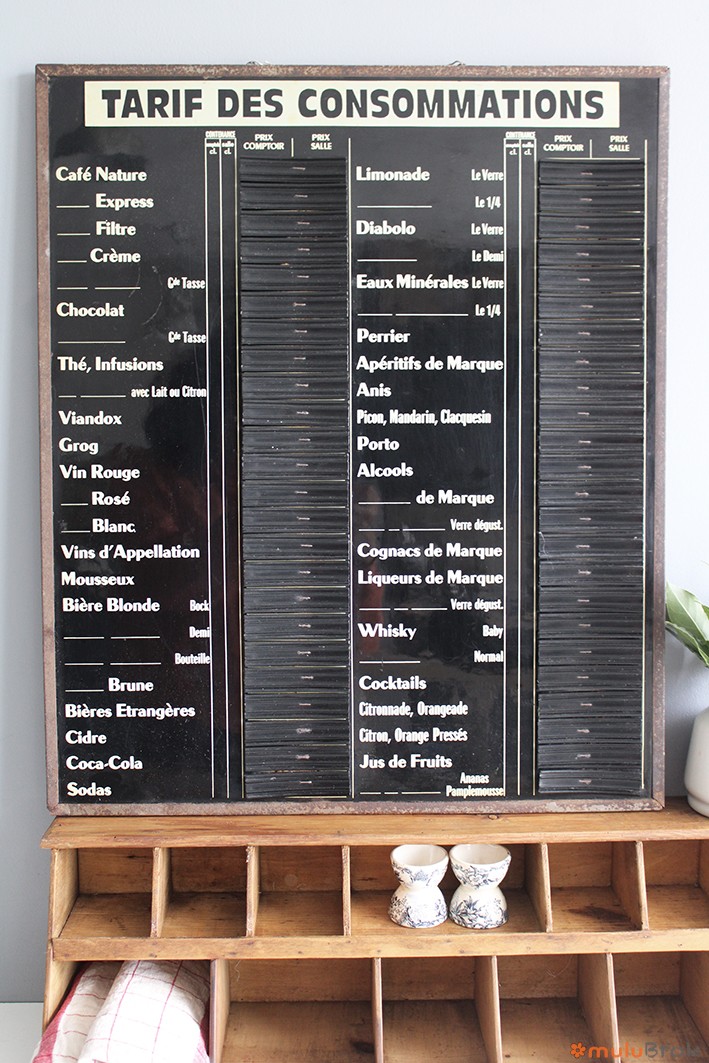 TARIF DES CONSOMMATIONS
CONTENANCE
comptoir cl. salle cl.
PRIX COMPTOIR
PRIX SALLE
Café Nature
Express
Filtre
Crème
Gde Tasse
Chocolat
Gde Tasse
Thé, Infusions
avec Lait ou Citron
Viandox
Grog
Vin Rouge
Rosé
Blanc
Vins d'Appellation
Mousseux
Bière Blonde Bock
Demi
Bouteille
Brune
Bières Etrangères
Cidre
Coca-Cola
Sodas
CONTENANCE
comptoir cl. salle cl.
PRIX COMPTOIR
PRIX SALLE
Limonade Le Verre
Le 1/4
Diabolo Le Verre
Le Demi
Eaux Minérales Le Verre
Le 1/4
Perrier
Apéritifs de Marque
Anis
Picon, Mandarin, Clacquesin
Porto
Alcools
de Marque
Verre dégust.
Cognacs de Marque
Liqueurs de Marque
Verre dégust.
Whisky Baby
Normal
Cocktails
Citronnade, Orangeade
Citron, Orange Pressés
Jus de Fruits
Ananas
Pamplemousse
muluBrok